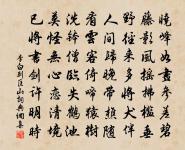 曉峰如畫參差碧
藤影風搖拂檻垂
野徑來多將犬伴
人間歸晚帶樵隨
看雲客倚啼猿樹
洗缽僧臨失鶴池
莫怪無心戀清境
已將書劍許明時
李白別匡山